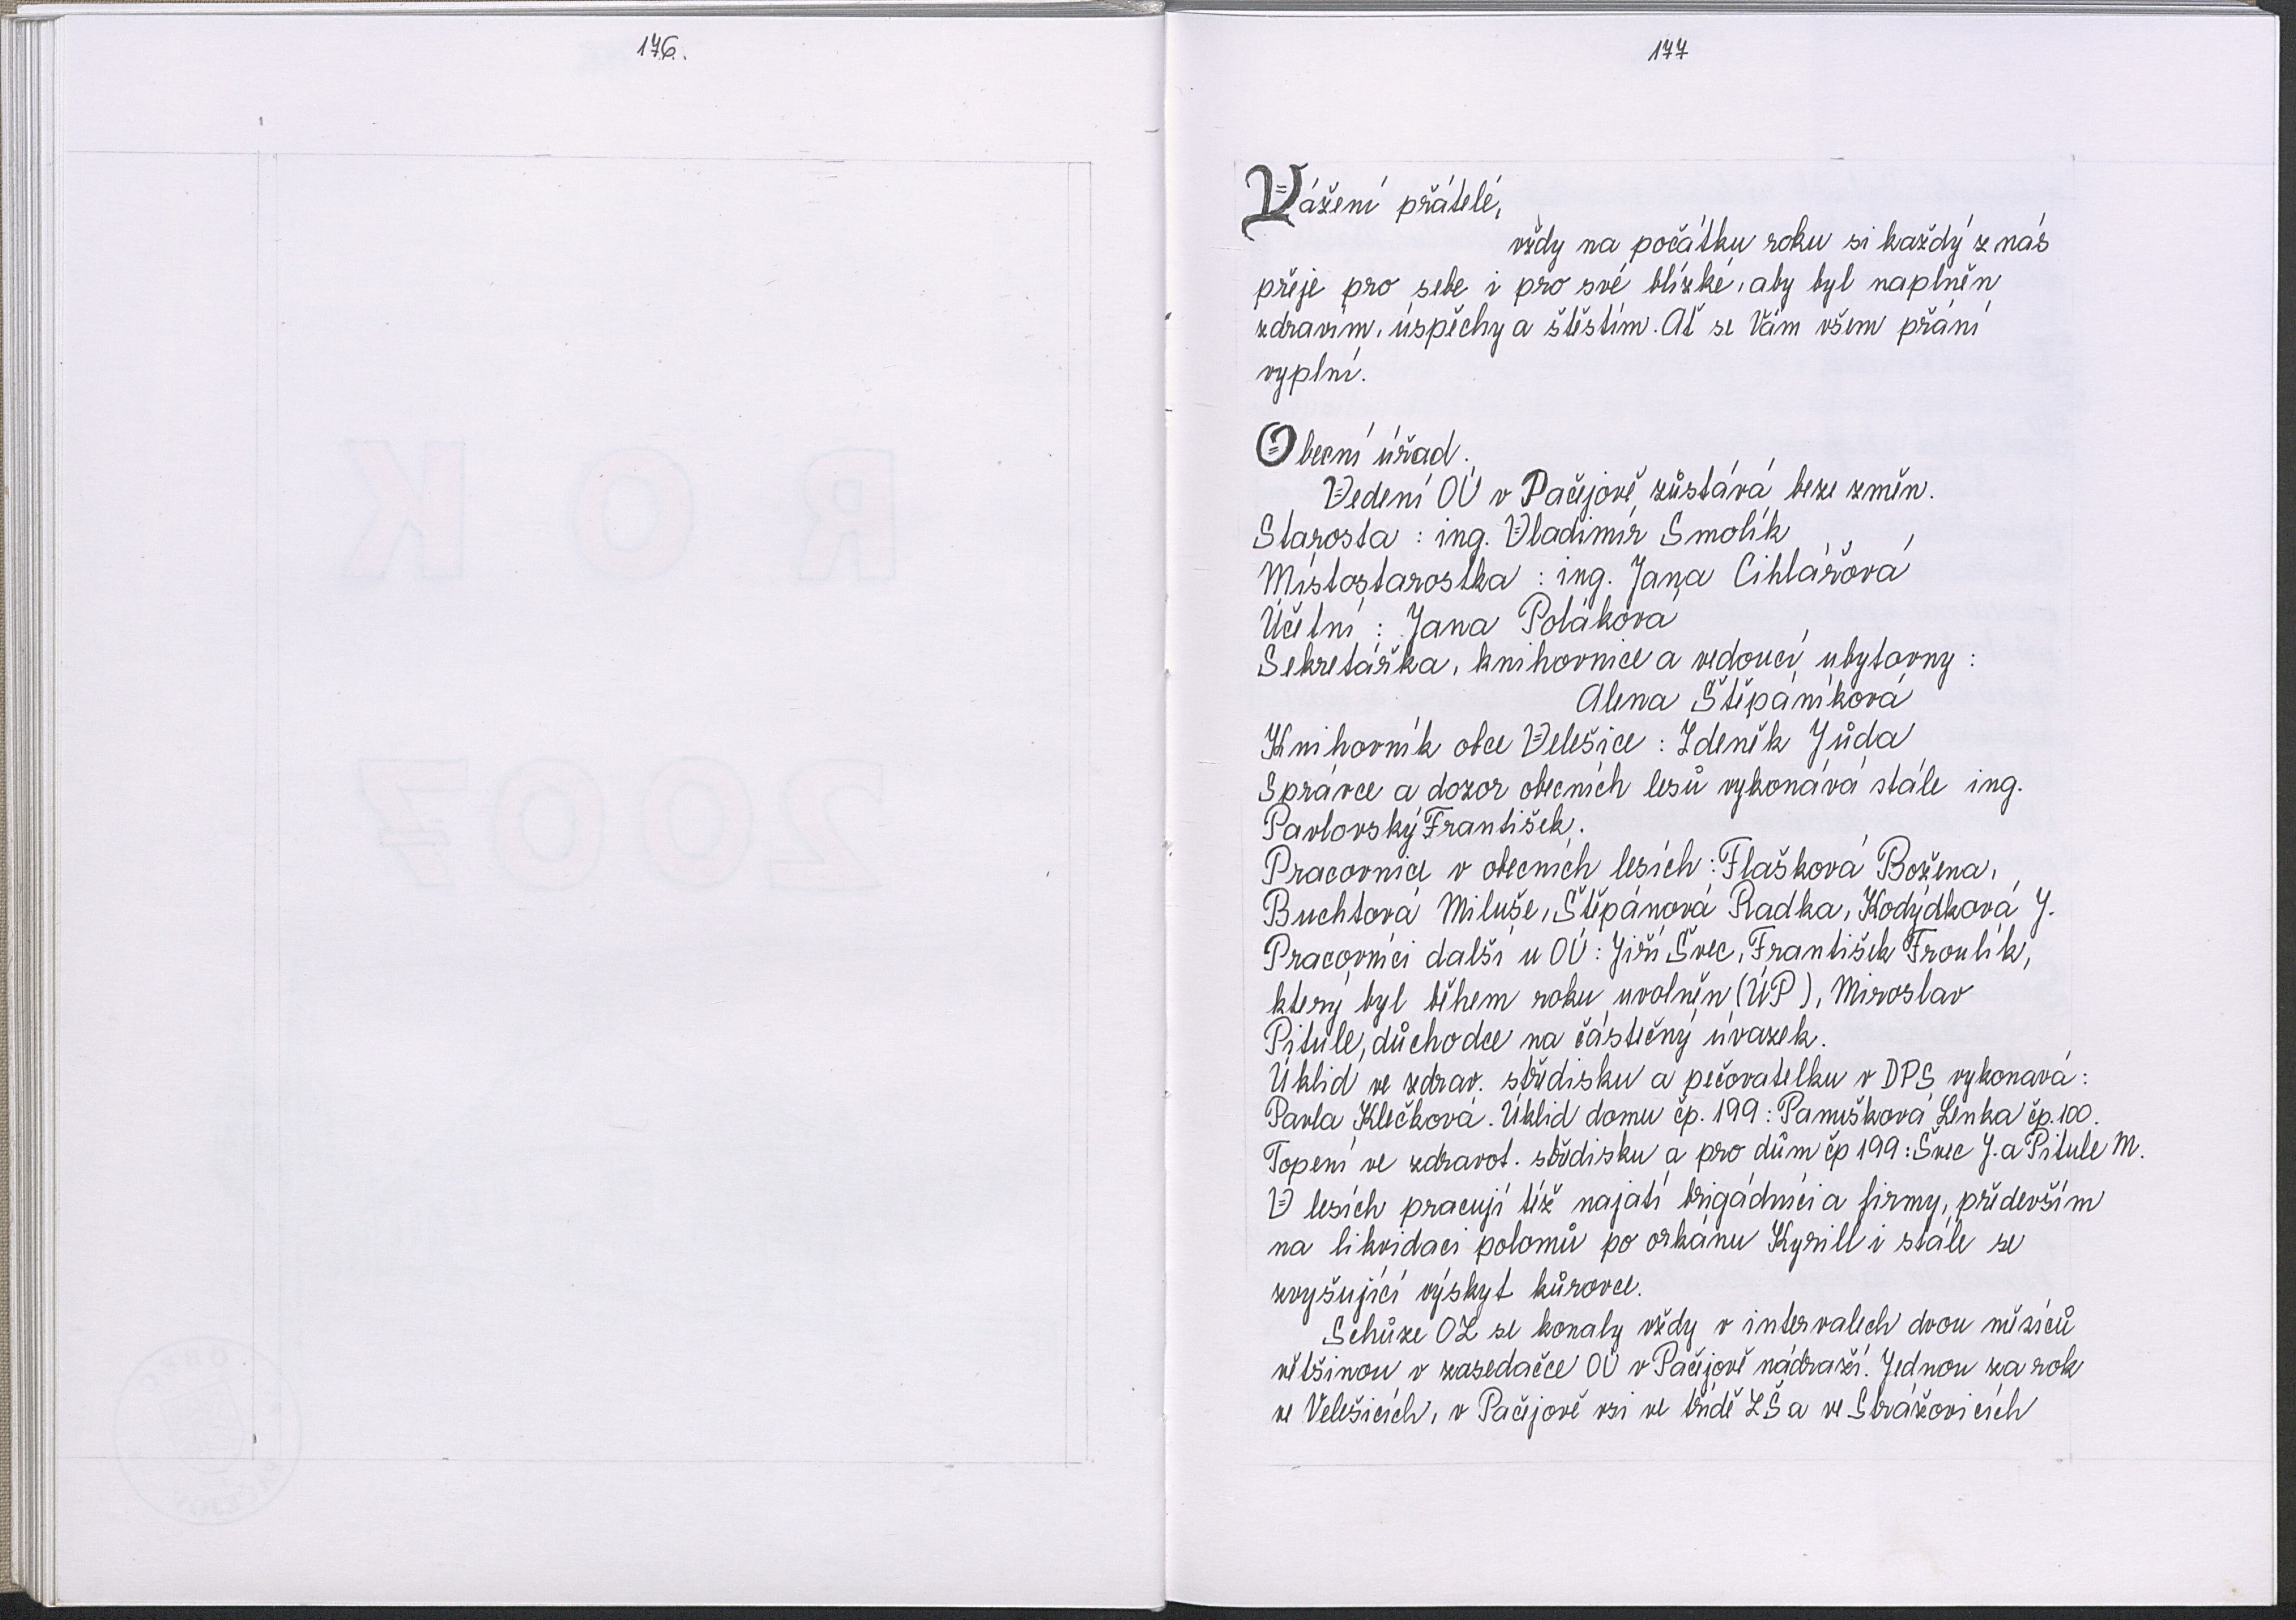 176.
177
Vážení přátelé,
vždy na počátku roku si každý z nás
přeje pro sebe i pro své blízké, aby byl naplněn
zdravím, úspěchy a štěstím. Ať se Vám všem přání
vyplní.
Obecní úřad.
Vedení OÚ v Pačejově zůstává beze změn.
Starosta : ing. Vladimír Smolík
Místostarostka : ing. Jana Cihlářová
Účetní : Jana Poláková
Sekretářka, knihovnice a vedoucí ubytovny :
Alena Štěpáníková
Knihovník obce Velešice : Zdeněk Jůda
Správce a dozor obecních lesů vykonává stále ing.
Pavlovský František.
Pracovnice v obecních lesích : Flašková Božena,
Buchtová Miluše, Štěpánová Radka, Kodýdková J.
Pracovníci další u OÚ : Jiří Švec, František Froulík,
který byl během roku uvolněn (ÚP), Miroslav
Pitule, důchodce na částečný úvazek.
Úklid ve zdrav. středisku a pečovatelku v DPS vykonává :
Pavla Klečková. Úklid domu čp. 199 : Panušková Lenka čp. 100.
Topení ve zdravot. středisku a pro dům čp 199 : Švec J. a Pitule M.
V lesích pracují též najatí brigádníci a firmy, především
na likvidaci polomů po orkánu Kyrill i stále se
zvyšující výskyt kůrovce.
Schůze OZ se konaly vždy v intervalech dvou měsíců
většinou v zasedačce OÚ v Pačejově nádraží. Jednou za rok
ve Velešicích, v Pačejově vsi ve třídě ZŠ a ve Strážovicích